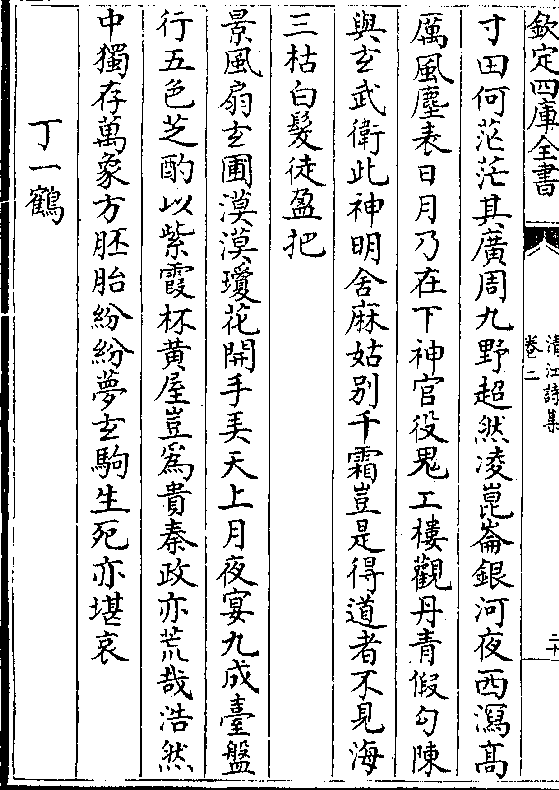 欽定四庫全書
清江詩集
卷二
二十
寸田何茫茫其廣周九野超然凌崑崙銀河夜西瀉髙
厲風塵表日月乃在下神官役鬼工樓觀丹青假勾陳
與𤣥武衛此神明舍麻姑别千霜豈是得道者不見海
三枯白髮徒盈把
景風扇𤣥圃漠漠瓊花開手弄天上月夜宴九成臺盤
行五色芝酌以紫霞杯黄屋豈爲貴秦政亦荒哉浩然
中獨存萬象方胚胎紛紛夢𤣥駒生死亦堪哀
丁一鶴